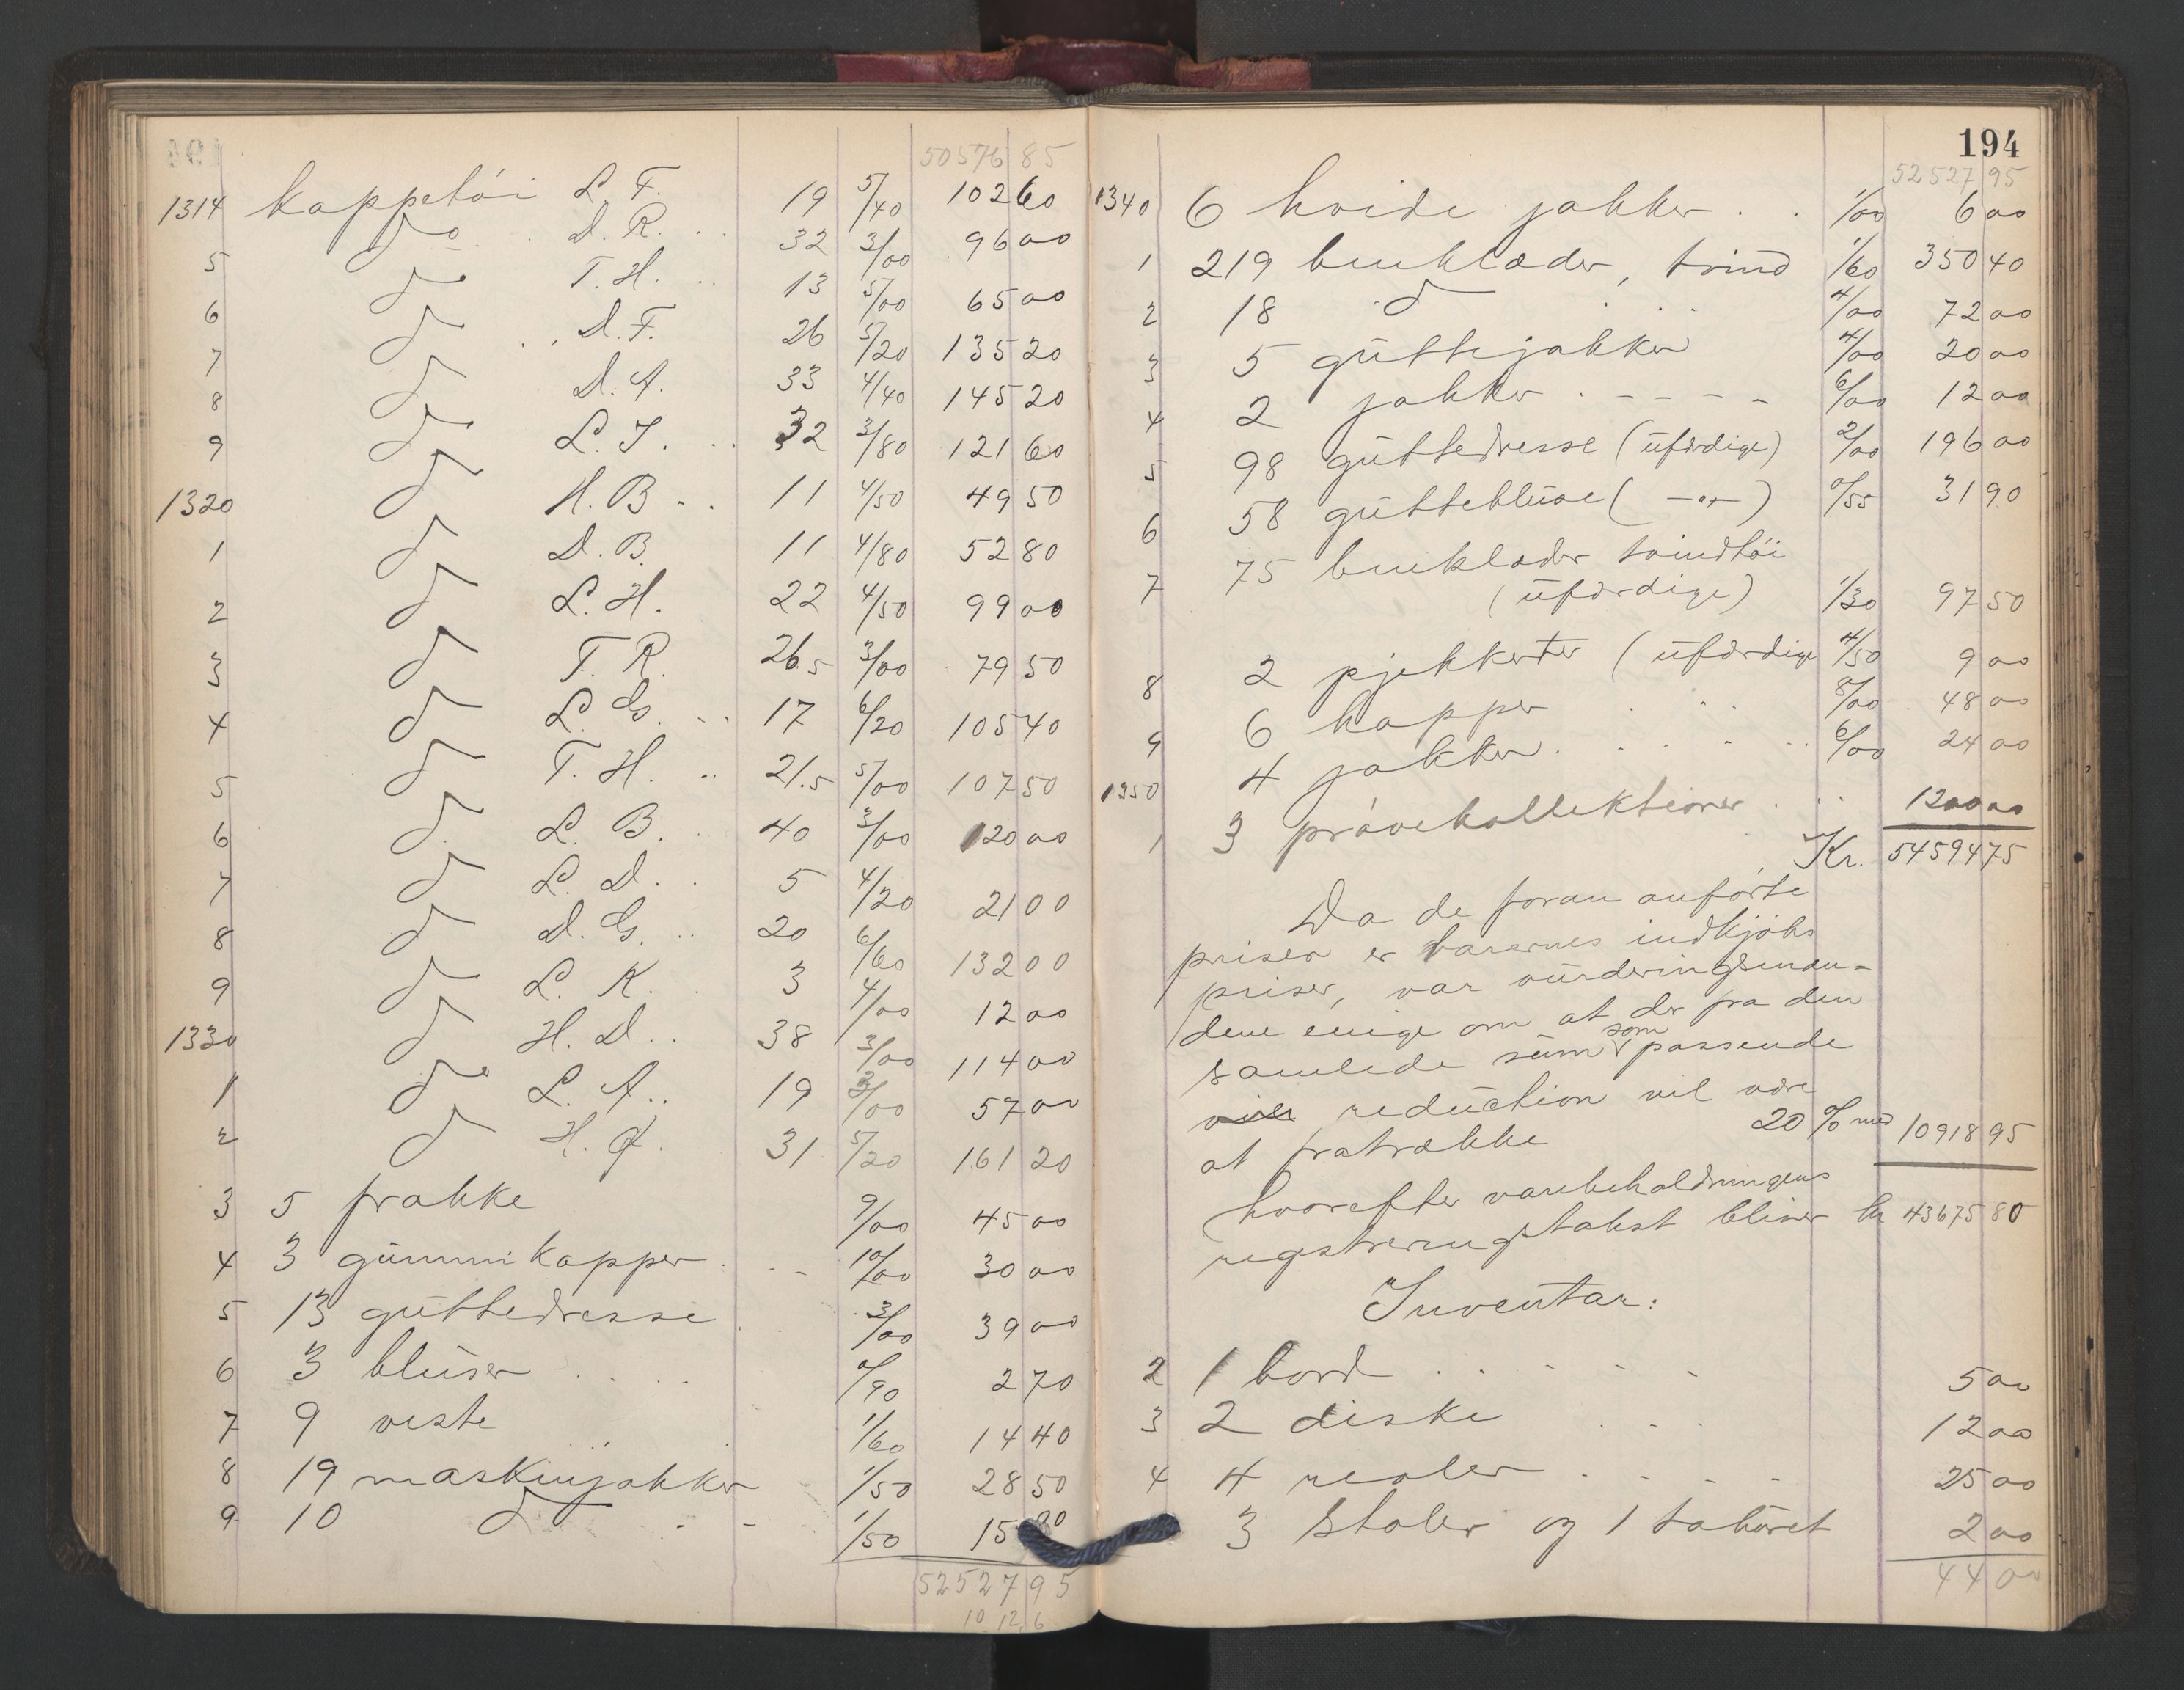 50576 85
1314 kappetöi L. F. 19 5/40 102 60
do . D. R. . . 32 3/00 96 00
5 do T. H. . . 13 5/00 65 00
6 do . . D. F. 26 5/20 135 20
7 do D. A. 33 4/40 145 20
8 do L. J. . . 32 3/80 121 60
9 do H. B . . 11 4/50 49 50
1320 do D. B. 11 4/80 52 80
1 do L. H. 22 4/50 99 00
2 do T. R. 26.5 3/00 79 50
3 do L. G. . . 17 6/20 105 40
4 do T. H. . . 21.5 5/00 107 50
5 do L. B. . 40 3/00 120 00
6 do L. D. . 5 4/20 21 00
7 do D. G. . . 20 6/60 132 00
8 do L. K. . 3 4/00 12 00
9 do H. D. . 38 3/00 114 00
1330 do L. A. . 19 3/00 57 00
1 do H. 31 5/20 161 20
2
3 5 frakke 9/00 45 00
4 3 gümmikapper . - - 10/00 30 00
5 13 güttedresse 3/00 39 00
6 3 blüser . . . . 0/90 2 70
7 9 veste 1/60 14 40
8 19 maskinjakker 1/50 28 50
9 10 do - - 1/50 15 00
52527 95
10 12 6
194
52527 95
1340 6 hvide jakker . . 1/00 6 00
1 219 benklæder, tvind 1/60 350 40
2 18 do . . 4/00 72 00
3 5 güttejakker 4/00 20 00
4 2 jakker . - - - - 6/00 12 00
5 98 güttedresse (üfærdige) 2/00 196 00
6 58 gütteblüse ( -"- ) 0/55 31 90
7 75 benklæder tvindtöi
(üfærdige) 1/30 97 50
8 2 pjekkerter (üfærdige 4/50 9 00
9 6 kapper . . . 8/00 48 00
1350 4 jakker . . . . . . 6/00 24 00
1 3 prövekollektioner . . . 1200 00
Kr. 54594 75
Da de foran anförte
priser er varernes indkjöbs
priser, var vürderingsmæn-
dene enige om at der fra den
samlede süm som passende
vilr redüction vil være
at fratrække 20% med 10918 95
hvorefter varebeholdningens
registreringstakst bliver kr 43675 80
Inventar:
2 1 bord . . . - . - 5 00
3 2 diske . . . 12 00
4 4 reoler . - - - 25 00
3 stoler og 1 taböret 2 00
44 00